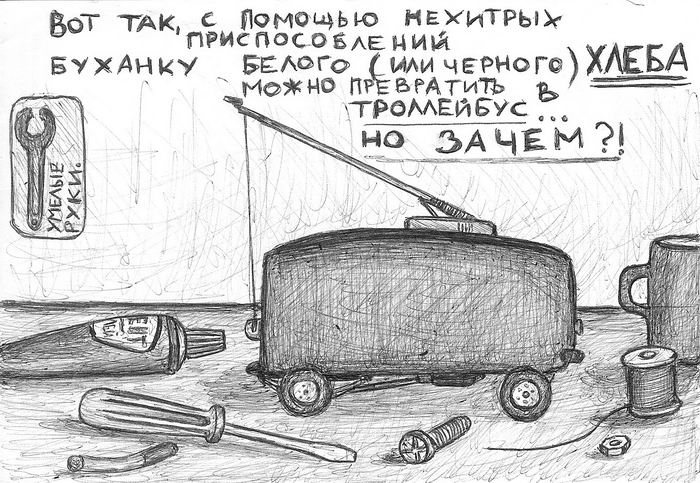 ВОТ ТАК, С ПОМОЩЬЮ НЕХИТРЫХ
ПРИСПОСОБЛЕНИЙ
БУХАНКУ БЕЛОГО (ИЛИ ЧЕРНОГО) ХЛЕБА
МОЖНО ПРЕВРАТИТЬ В
ТРОЛЛЕЙБУС...
НО ЗАЧЕМ?!
УМЕЛЫЕ
РУКИ.